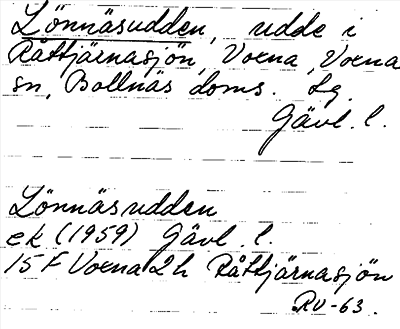 Lönnäsudden, udde i
Råttjärnasjön, Voxna, Voxna
sn, Bollnäs doms. Lg.
Gävl. l.
Lönnäsudden
ek (1959) Gävl. l.
15 F Voxna 2 h Råttjärnasjön
RV-63.